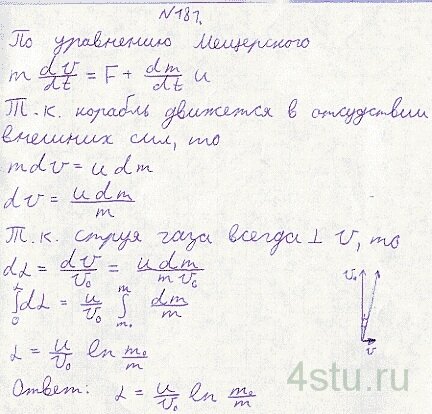 №181.
По уравнению Мещерского
m dv/dt = F + dm/dt u
Т.к. корабль движется в отсудствии
внешних сил, то
mdv = udm
dv = udm/m
Т.к. струя газа всегда ⊥ v, то
dα = dv/v₀ = udm/mv₀
∫₀^α dα = u/v₀ ∫_m₀^m dm/m
α = u/v₀ ln m₀/m
Ответ: α = u/v₀ ln m₀/m
v₀
v
4stu.ru